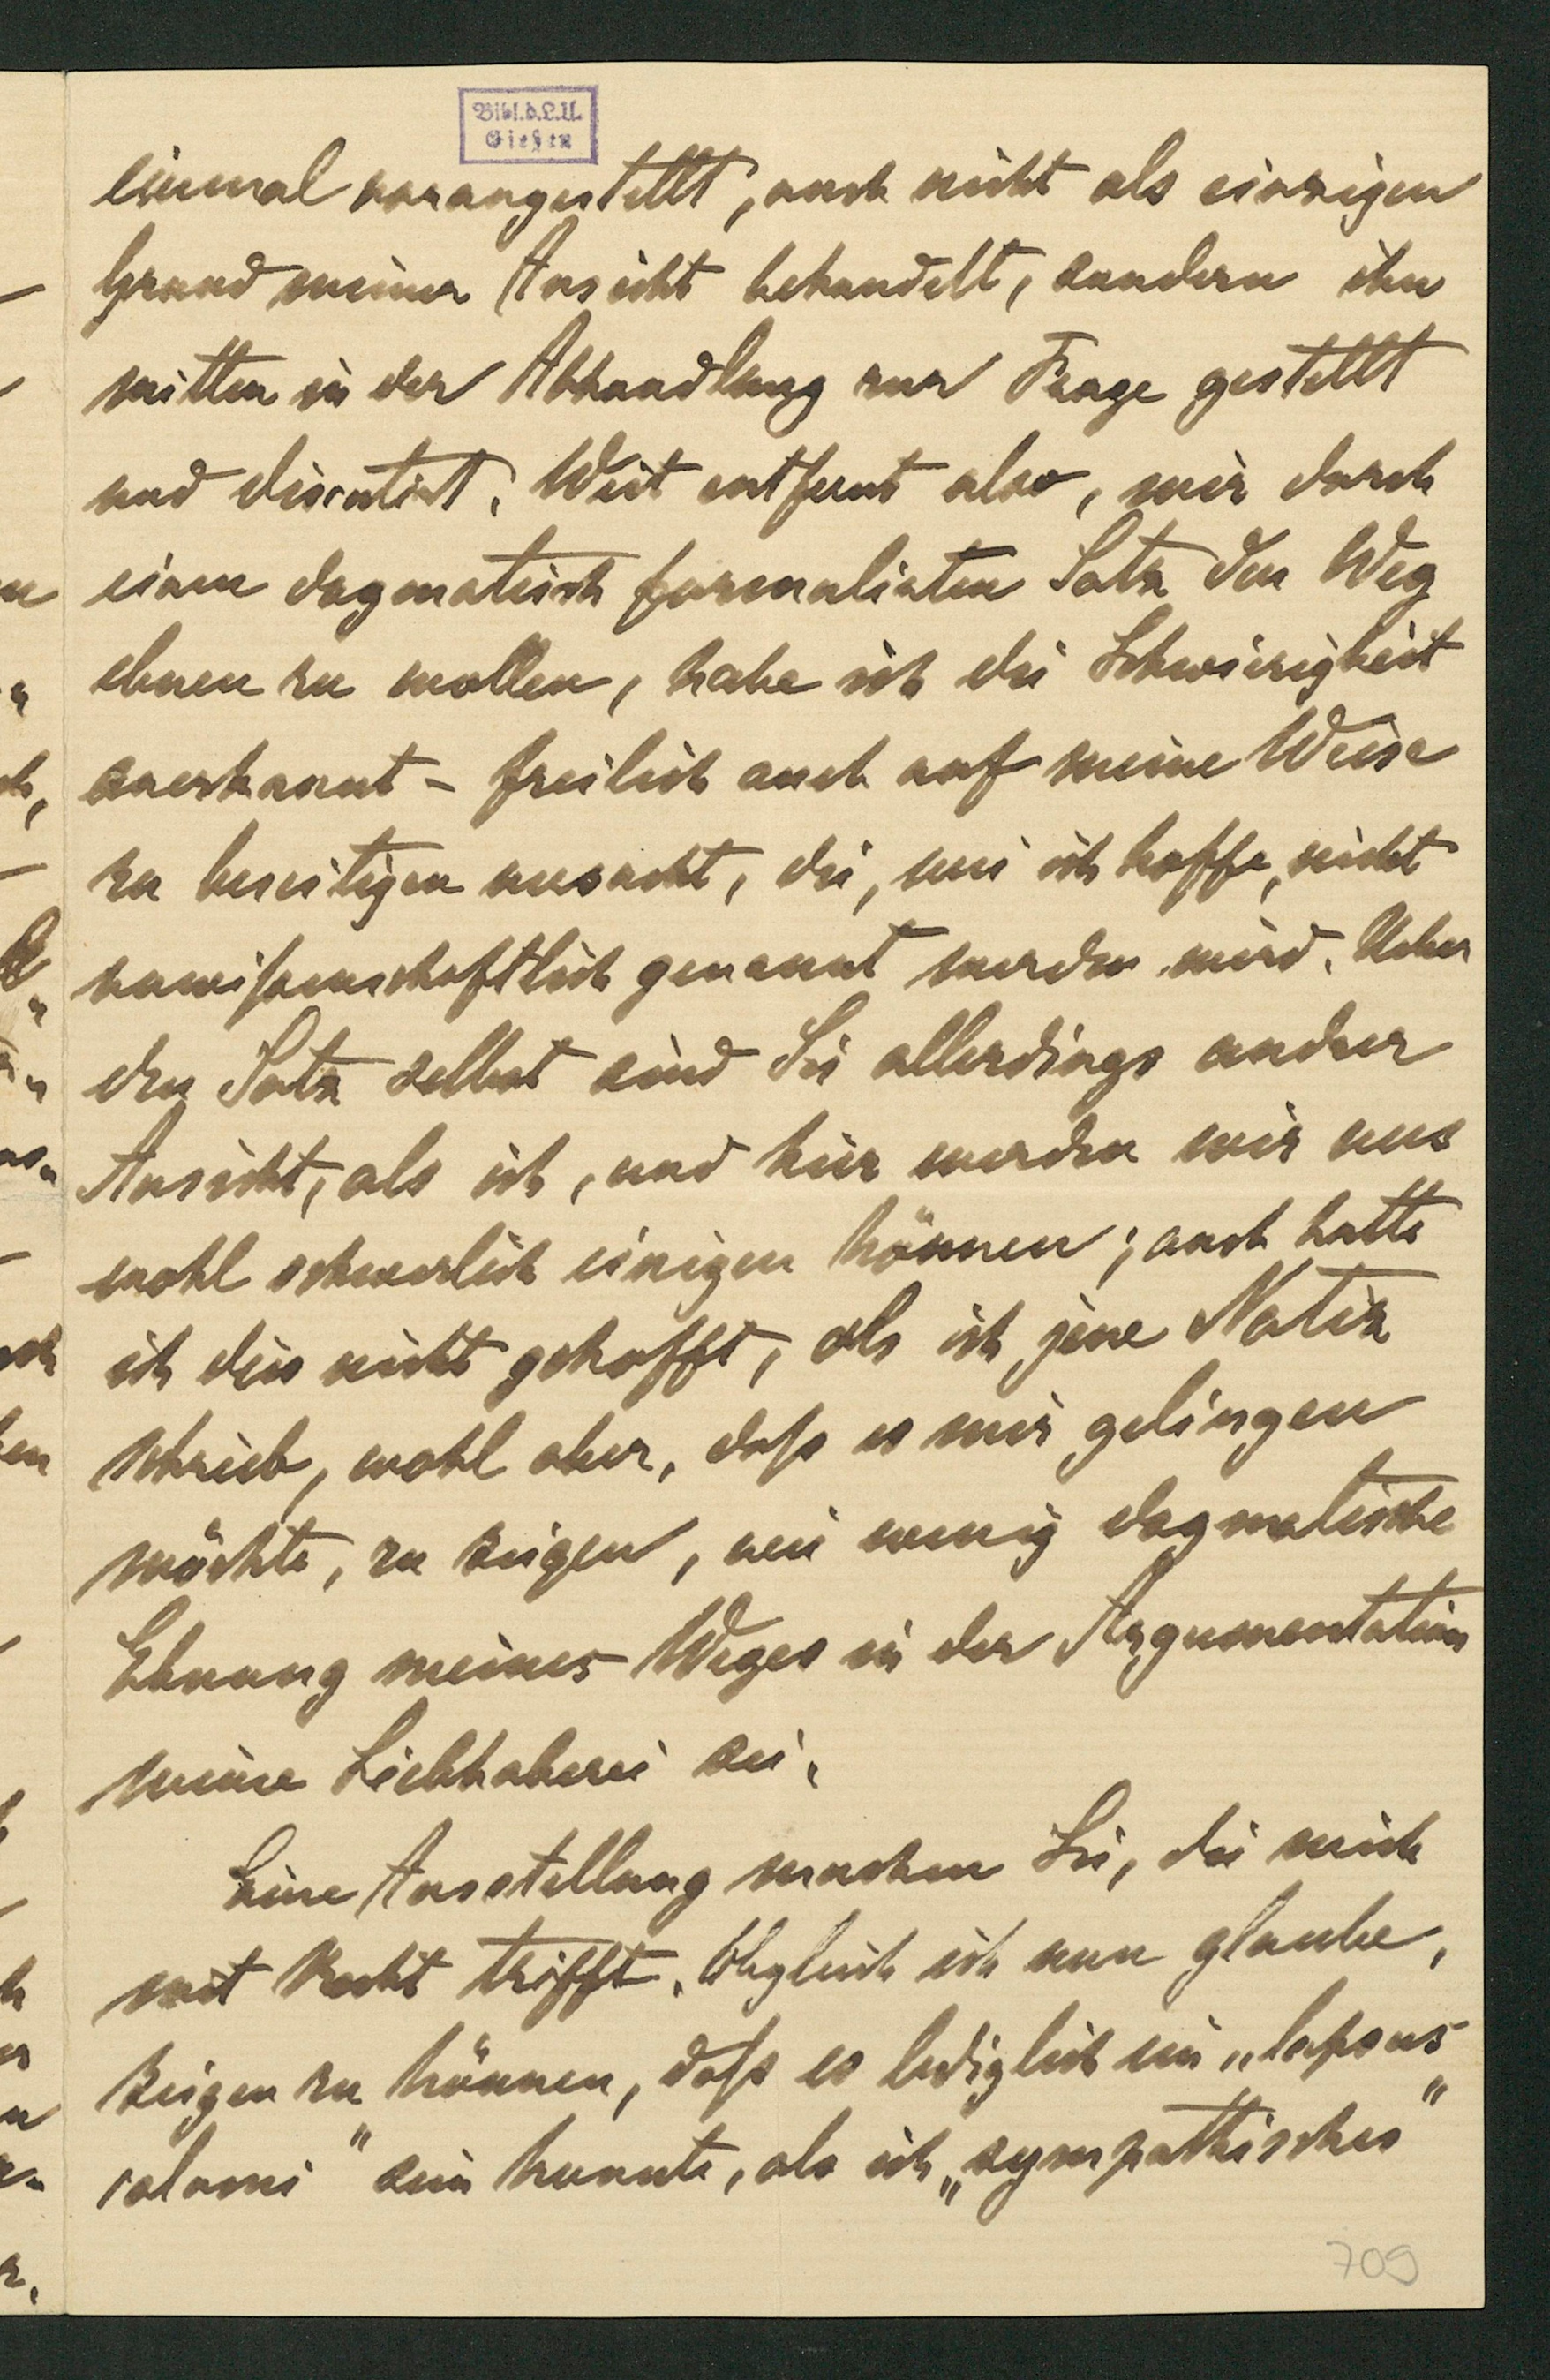 Bibl.d.L.U.
Gießen
einmal vorangestellt, auch nicht als einzigen
Grund meiner Ansicht behandelt, sondern ihn
mitten in der Abhandlung zur Frage gestellt
und discutirt. Weit entfernt also, mir durch
einen dogmatisch formulirten Satz den Weg
ebnen zu wollen, habe ich die Schwierigkeit
anerkannt – freilich auch auf meine Weise
zu beseitigen versucht, die, wie ich hoffe, nicht
unwissenschaftlich genannt werden wird. Ueber
den Satz selbst sind Sie allerdings andrer
Ansicht, als ich, und hier werden wir uns
wohl schwerlich einigen können; auch hatte
ich dies nicht gehofft, als ich jene Notiz
schrieb, wohl aber, daß es mir gelingen
möchte, zu zeigen, wie wenig dogmatische
Ebnung meines Weges in der Argumentation
meine Liebhaberei sei.
Eine Ausstellung machen Sie, die mich
mit Recht trifft. Obgleich ich nun glaube,
zeigen zu können, daß es lediglich ein „lapsus
calami" sein konnte, als ich „sympathisches"
709